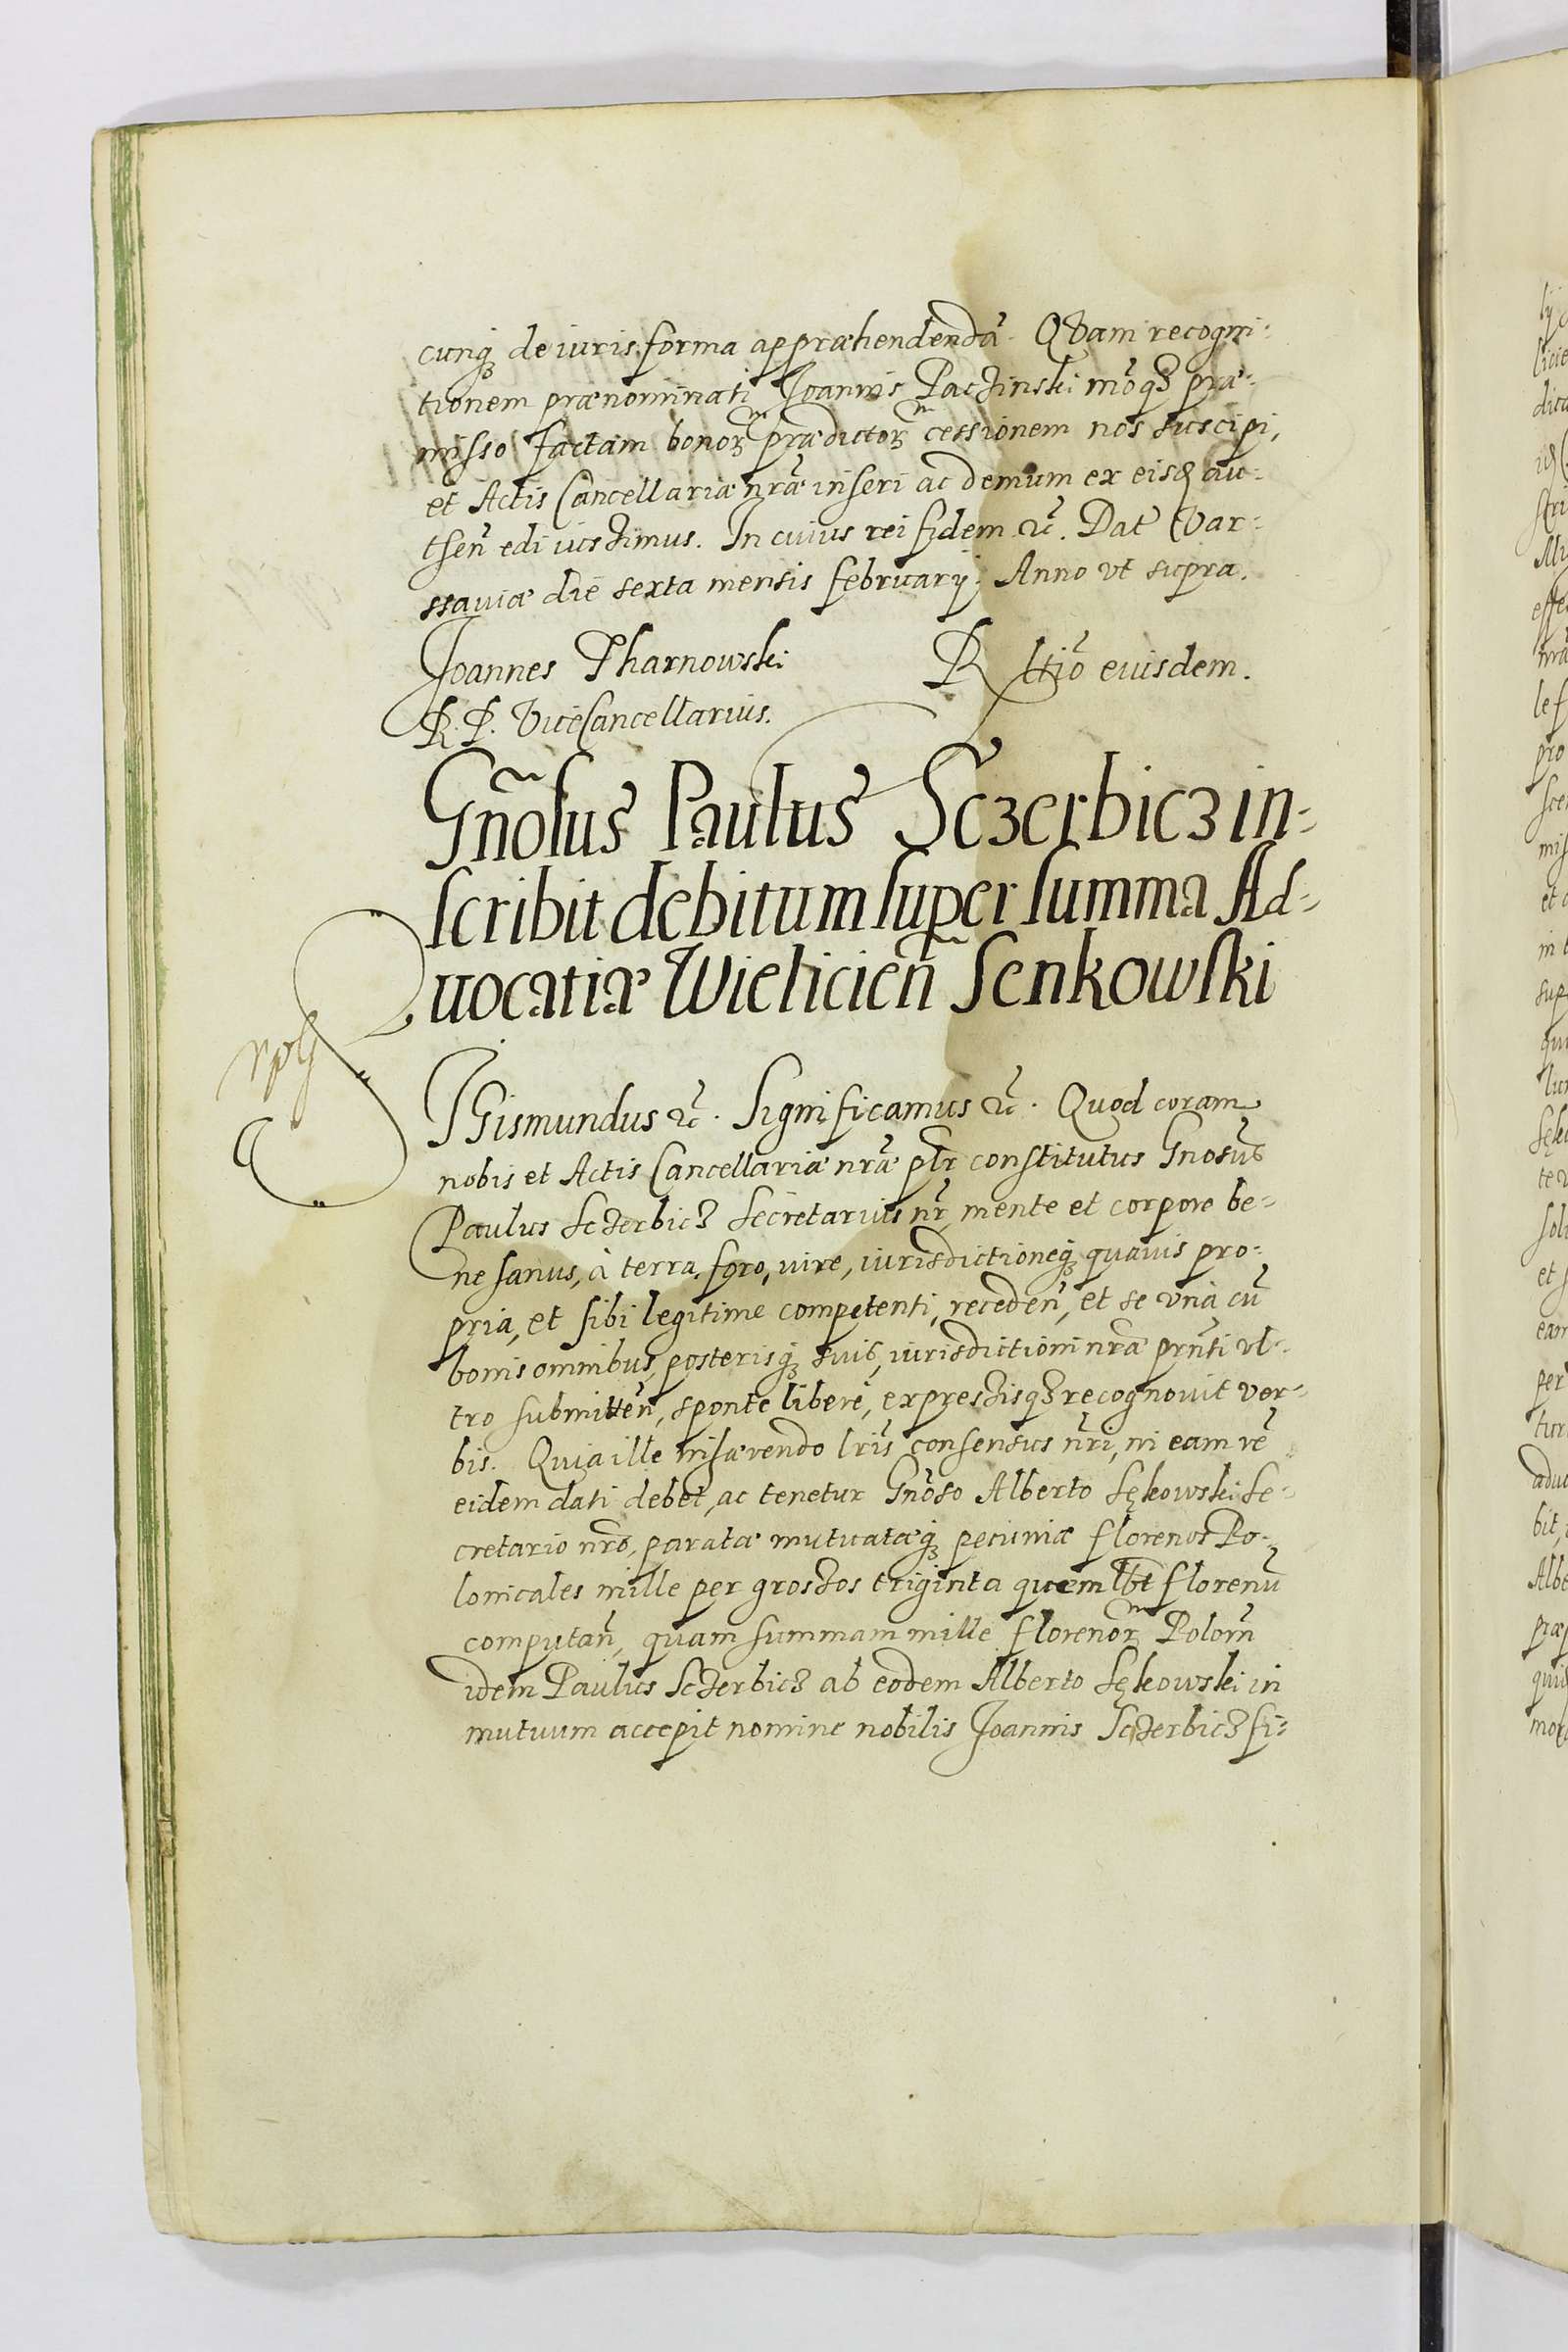 cunq₃ de iuris forma appraehendendā. Quam recogni-
tionem praenominati Joannis Paczinski mōq₃ prae-
misso factam bonorum praedictorum cessionem nos suscipi,
et Actis Cancellariae nrae inseri ac demum ex eisd au-
tsen̄ edi iussimus. In cuius rei fidem &c̄. Dat̄ Var-
ssaviae die sexta mensis februarij. Anno vt supra.
Joannes Tharnowski R ltio eiusdem.
R. P. ViceCancellarius.
Gn̄osus Paulus Sczerbicz in-
scribit debitum super summa Ad-
uocatiae Wielicien̄ Senkowski
SGismundus &c̄. Significamus &c̄. Quod coram
nobis et Actis Cancellariae nrāe pltr constitutus Gnosus
Paulus Sczerbicz Secretarius nr̄, mente et corpore be-
ne sanus, à terra, foro, iure, iurisdictioneq₃ quavis pro-
pria, et sibi legitime competenti, receden̄, et se vnà cū
bonis omnibus, posterisq₃ suis, iurisdictioni nrae prn̄ti vl-
tro submitten̄, sponte libere, expressisq₃ recognouit ver-
bis. Quia ille inhaerendo lris̄ consensus nr̄i, in eam rē
eidem dati debet, ac tenetur Gnōso Alberto Sękowski Se-
cretario nrō, paratae mutuataeq₃ pecuniae florenos Po-
lonicales mille per grossos triginta quemlbt florenū
computan̄, quam summam mille florenorum Polon̄
idem Paulus Sczerbicz ab eodem Alberto Sękowski in
mutuum accepit nomine nobilis Joannis Sczerbicz fi-